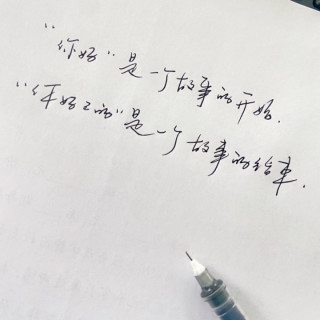 “你好”是一个故事的开始.
“你好了的”是一个故事的结束.